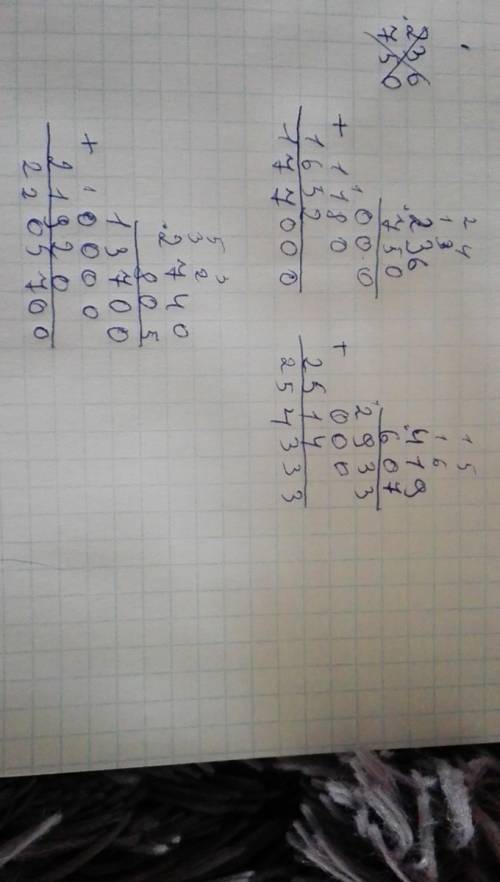 236
750
2 4
1 3
236
750
000
+ 1180
1652
177000
1 5
1 6
419
607
2933
+ 000
2514
254333
5 3
3 2
2740
805
13700
+ 0000
21920
2205700